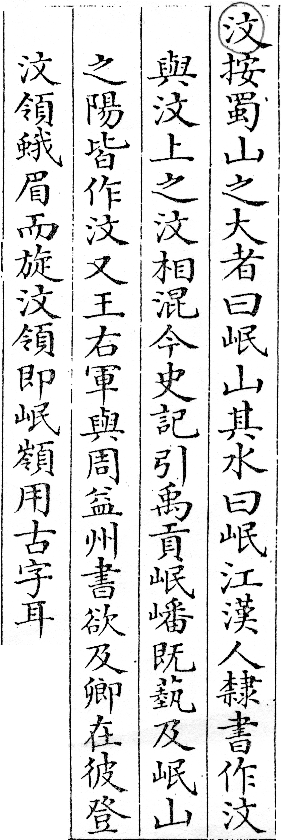 汶按蜀山之大者曰岷山其水曰岷江漢人隸書作汶
與汶上之汶相混今史記引禹貢岷嶓既蓺及岷山
之陽皆作汶又王右軍與周益州書欲及卿在彼登
汶領蛾眉而旋汶領即岷嶺用古字耳